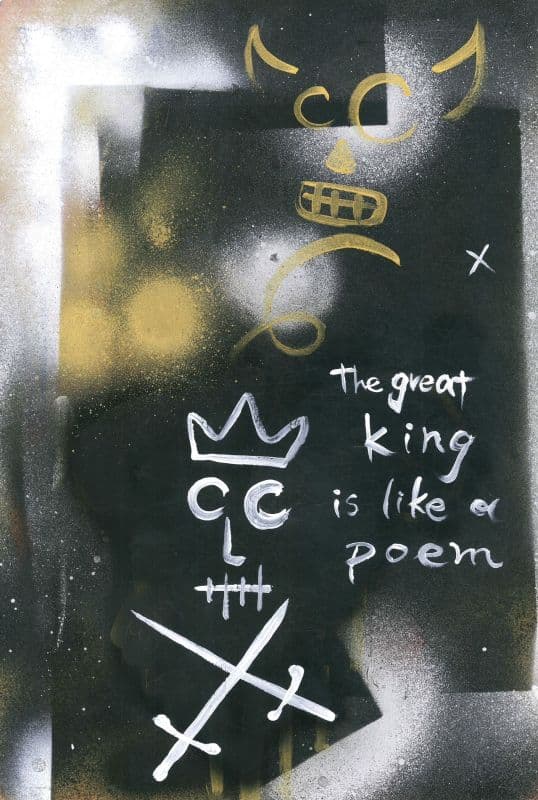 The great
king
is like a
poem